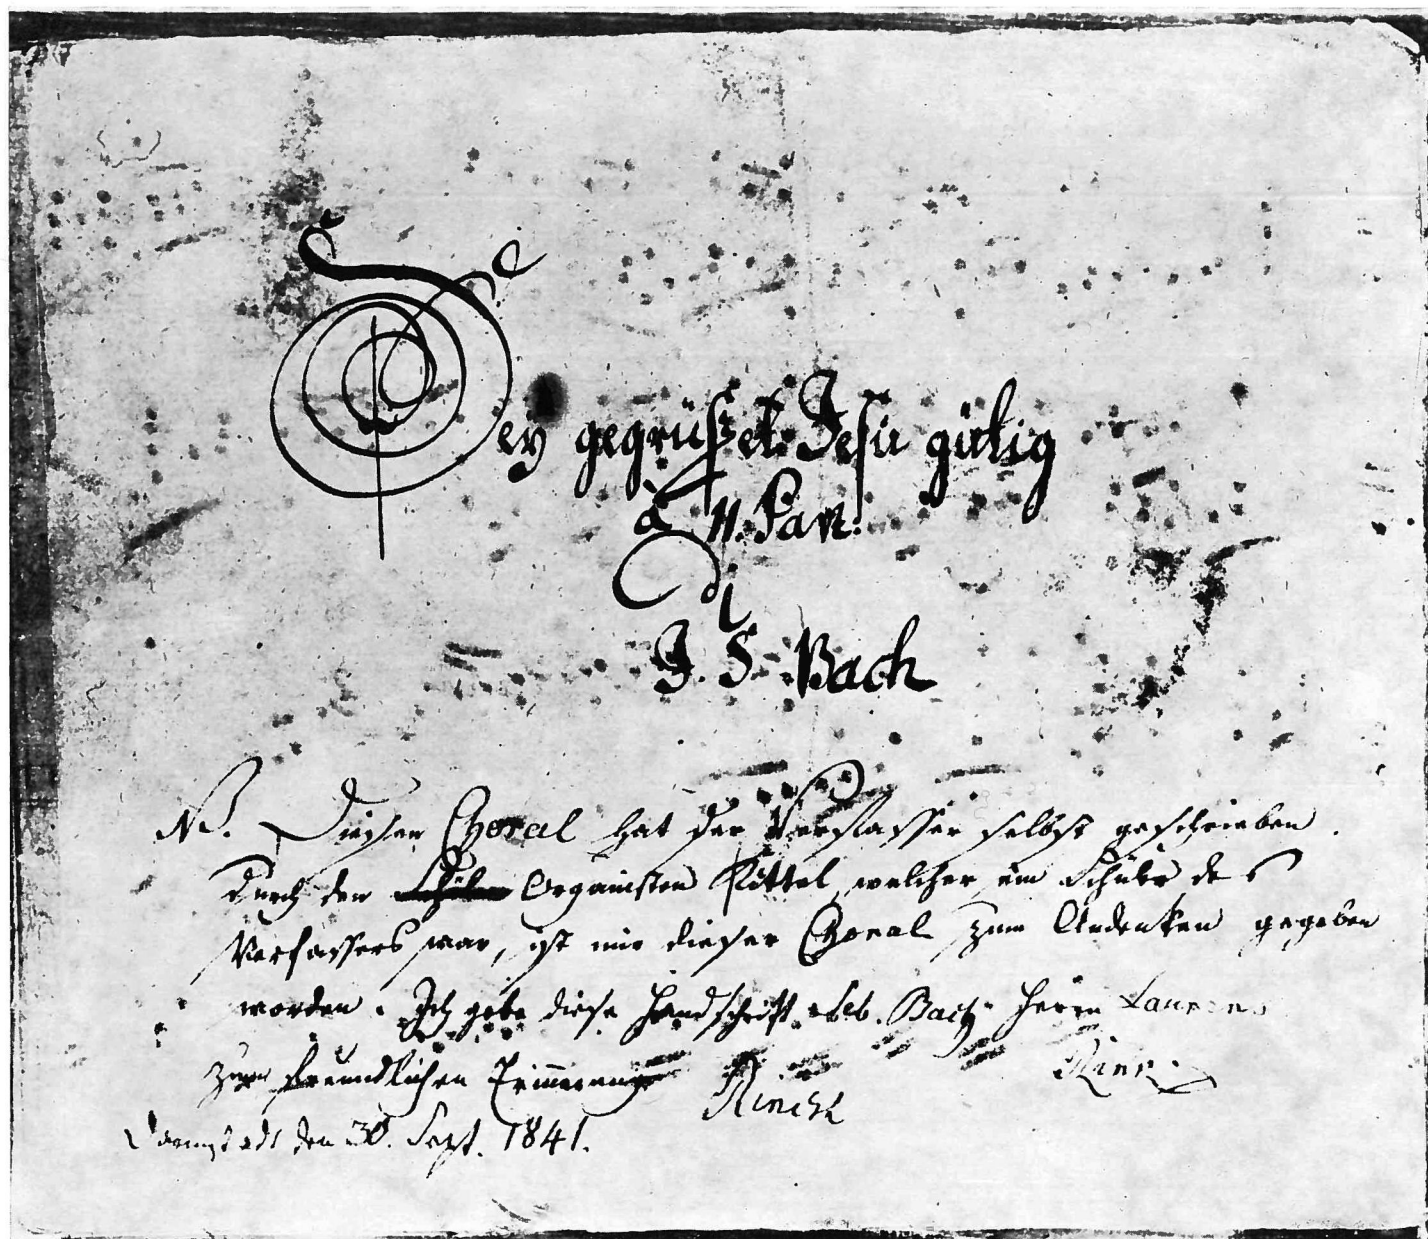 Sey gegrüßet Jesu gütig
à 4. Part:
Di
J. S. Bach
NB. Diesen Choral hat der Verfasser selbst geschrieben.
Durch den Organisten Kittel, welcher ein Schüler des
Verfassers war, ist mir dieser Choral zum Andenken gegeben
worden. Ich gebe diese Handschrift Seb. Bach Herrn Laurens
zur freundlichen Erinnerung
Rinck
Darmstadt den 30. Sept. 1841.